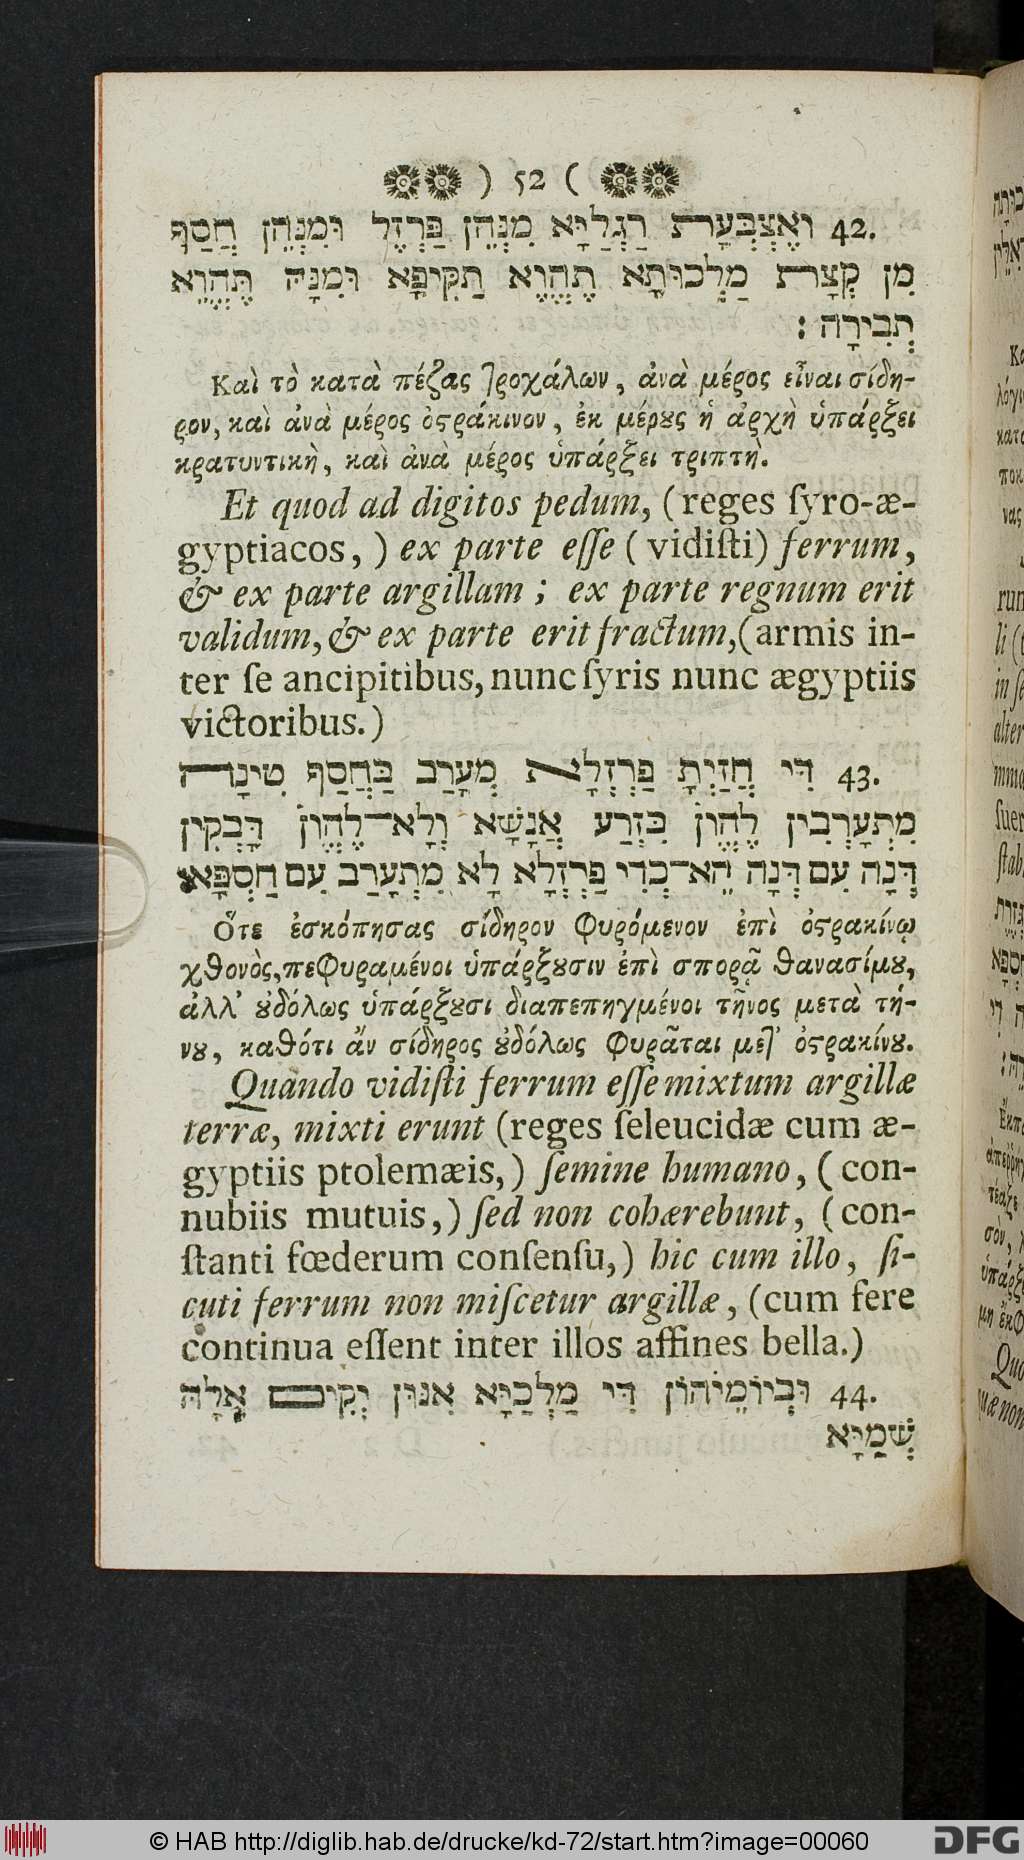 ) 52 (
42. וְאֶצְבְּעָת רַגְלַיָּא מִנְּהֵן פַּרְזֶל וּמִנְּהֵן חֲסַף
מִן קְצָת מַלְכוּתָא תֶּהֱוֵא תַקִּיפָא וּמִנָּהּ תֶּהֱוֵא
תְבִירָה :
Καὶ τὸ κατὰ πέζας τροχάλων, ἀνὰ μέρος εἶναι σίδη-
ρον, καὶ ἀνὰ μέρος ὀϛράκινον, ἐκ μέρȣς ἡ ἀρχὴ ὑπάρξει
κρατυντικὴ, καὶ ἀνὰ μέρος ὑπάρξει τριπτὴ.
Et quod ad digitos pedum, (reges ſyro-æ-
gyptiacos, ) ex parte eſſe ( vidiſti) ferrum,
& ex parte argillam ; ex parte regnum erit
validum, & ex parte erit fractum, (armis in-
ter ſe ancipitibus, nunc ſyris nunc ægyptiis
victoribus.)
43. דִּי חֲזַיְתָ פַּרְזְלָא מְעָרַב בַּחֲסַף טִינָה
מִתְעָרְבִין לֶהֱוֹן בִּזְרַע אֲנָשָׁא וְלָא־לֶהֱוֹן דָּבְקִין
דְּנָה עִם דְּנָה הֵא־כְדִי פַרְזְלָא לָא מִתְעָרַב עִם חַסְפָּא׃
Ὅτε ἐσκόπησας σίδηρον φυρόμενον ἐπὶ ὀϛρακίνῳ
χθονὸς, πεφυραμένοι ὑπάρξȣσιν ἐπὶ σπορᾷ θανασίμȣ,
ἀλλ' ȣδόλως ὑπάρξȣσι διαπεπηγμένοι τῆνος μετὰ τή-
νȣ, καθότι ἂν σίδηρος ȣδόλως φυρᾶται μετ' ὀϛρακίνȣ.
Quando vidiſti ferrum eſſe mixtum argillæ
terræ, mixti erunt (reges ſeleucidæ cum æ-
gyptiis ptolemæis,) ſemine humano, ( con-
nubiis mutuis,) ſed non cohærebunt, (con-
ſtanti fœderum conſenſu,) hic cum illo, ſi-
cuti ferrum non miſcetur argillæ, (cum fere
continua eſſent inter illos affines bella.)
44. וּבְיוֹמֵיהוֹן דִּי מַלְכַיָּא אִנּוּן יְקִים אֱלָהּ
שְׁמַיָּא
© HAB http://diglib.hab.de/drucke/kd-72/start.htm?image=00060
DFG